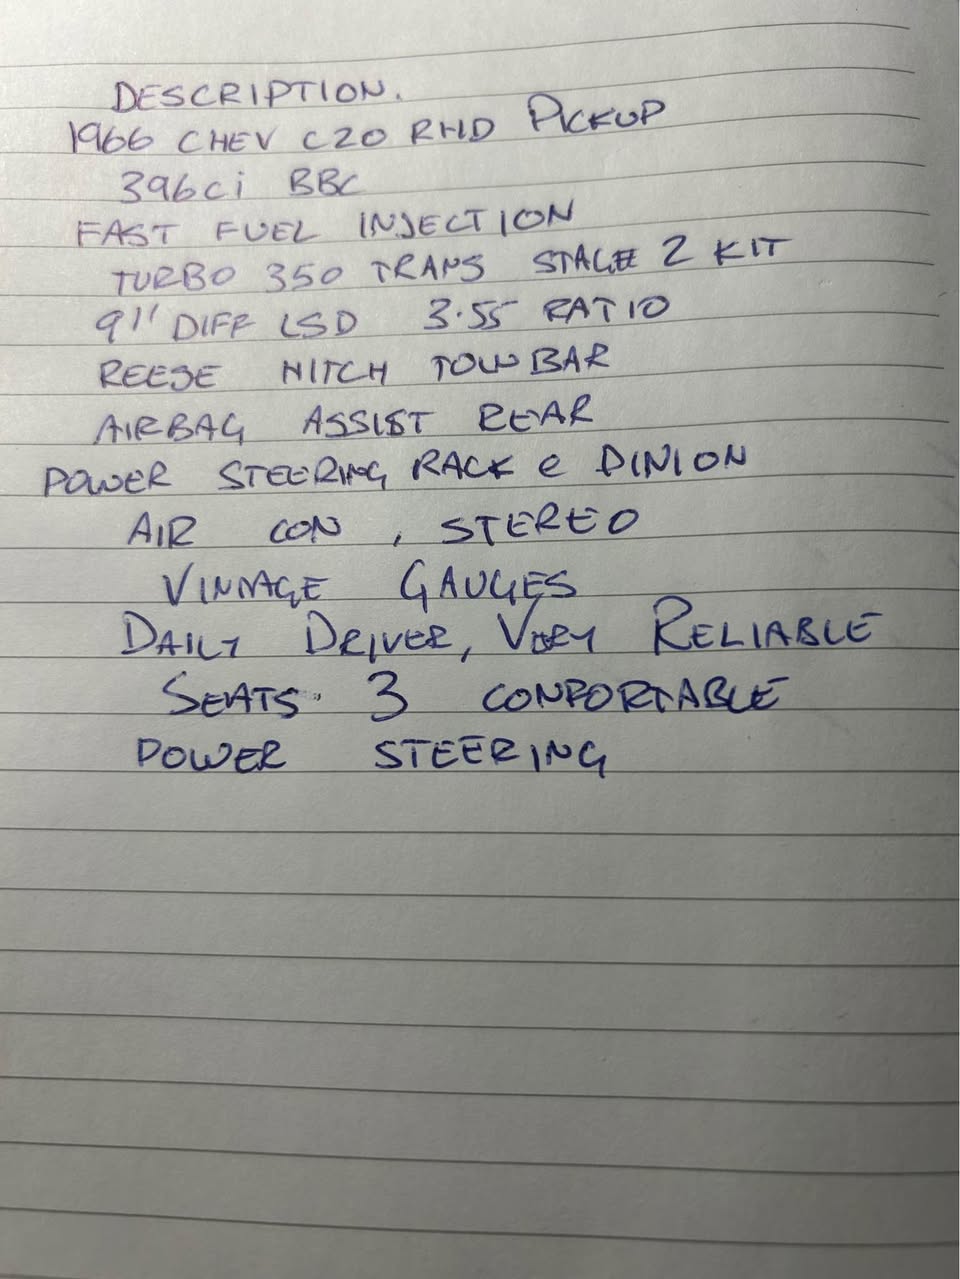 DESCRIPTION.
1966 CHEV C20 RHD PICKUP
396ci BBC
FAST FUEL INJECTION
TURBO 350 TRANS STAGE 2 KIT
9" DIFF LSD 3.55 RATIO
REESE HITCH TOW BAR
AIRBAG ASSIST REAR
POWER STEERING RACK e PINION
AIR CON, STEREO
VINTAGE GAUGES
DAILY DRIVER, VERY RELIABLE
SEATS 3 COMFORTABLE
POWER STEERING